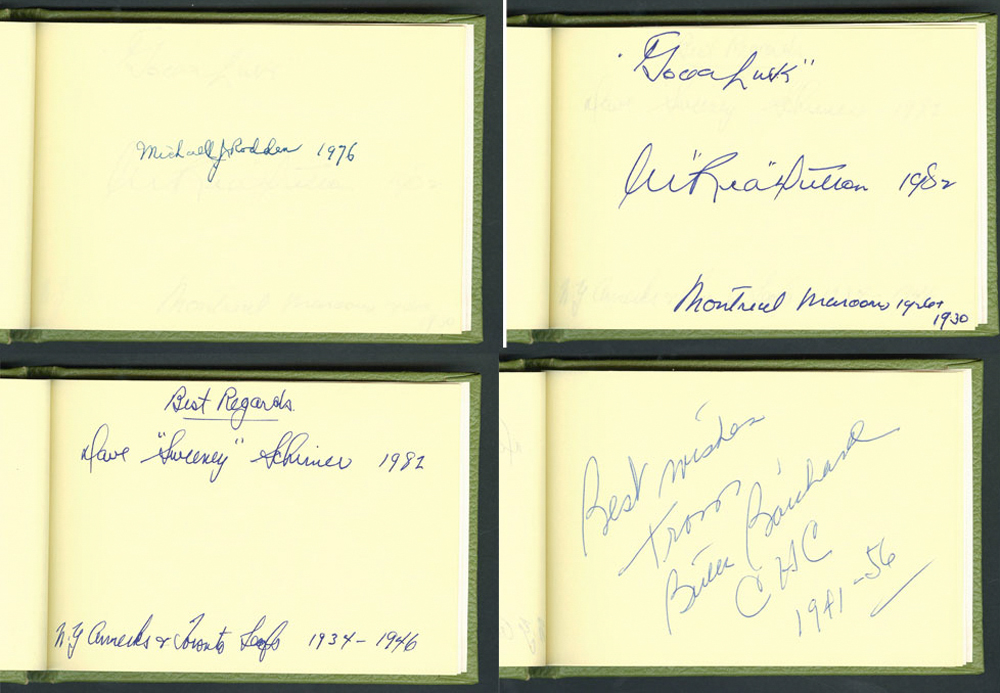 Michael J. Rodden 1976
"Good Luck"
M "Red" Dutton 1982
Montreal Maroons 1926 +
1930
Best Regards.
Dave "Sweeney" Schriner 1982
N.Y Amerks & Toronto Leafs 1934-1946
Best wishes
From
Butch Bouchard
CHC
1941-56